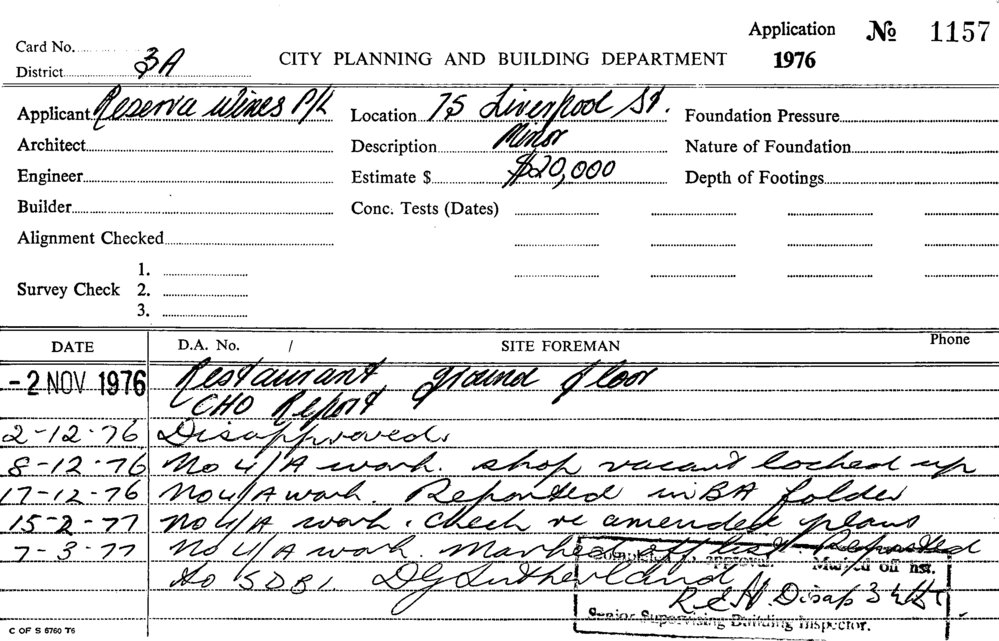 Application № 1157
Card No.
CITY PLANNING AND BUILDING DEPARTMENT 1976
District 3A
Applicant Reserva Wines P/L Location 75 Liverpool St. Foundation Pressure
Architect Description Minor Nature of Foundation
Engineer Estimate $ $20,000 Depth of Footings
Builder Conc. Tests (Dates)
Alignment Checked
1.
Survey Check 2.
3.
DATE D.A. No. / SITE FOREMAN Phone
-2 NOV 1976 Restaurant, ground floor
CHO Report
2-12-76 Disapproved
8-12-76 No U/A work. shop vacant locked up
17-12-76 No U/A work. Reported in BA folder
15-2-77 No U/A work. Check re amended plans
7-3-77 No U/A work. Marked off list Reported
to SDBI. DG Sutherland
Completed approval. Marked off list.
Disap
Senior Supervising Building Inspector.
C OF S 5760 76